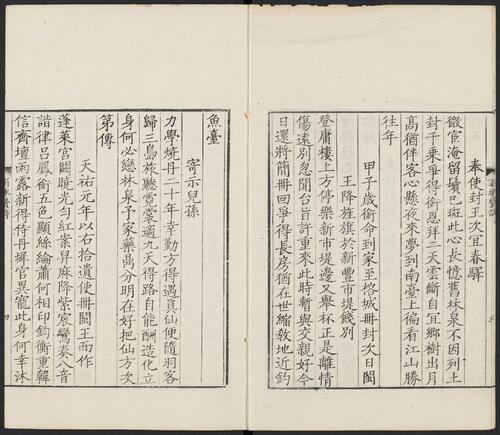 奉使封王次宜春驛
微宦淹留鬢已斑此心長憶舊林泉不因列土
封千乘爭得銜恩拜二天雲斷自宜鄉樹出月
高猶伴客心懸夜來夢到南臺上徧看江山勝
往年
甲子歲銜命到家至榕城冊封次日閩
王降旌旗於新豐市堤餞別
登庸樓上方停樂新市堤邊又舉杯正是離情
傷遠別忽聞台旨許重來此時暫與交親好今
日還將簡冊回爭得長房猶在世縮教地近釣
魚臺
寄示兒孫
力學燒丹二十年辛勤方得遇真仙便隨羽客
歸三島旋聽霓裳適九天得路自能酬造化立
身何必戀林泉予家藥鼎分明在好把仙方次
第傳
天祐元年以右拾遺使冊閩王而作
蓬萊宮闕曉光勻紅案昇麻降紫宸鸞奏八音
諧律呂鳳銜五色顯絲綸蕭何相印鈞衡重韓
信齋壇雨露新得侍丹墀官異寵此身何幸沐